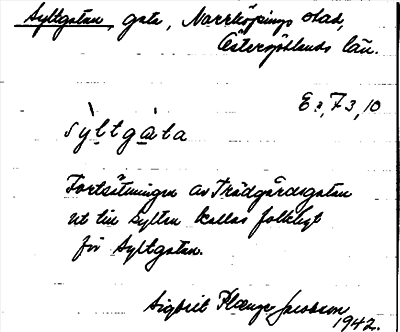 Syltgatan, gata, Norrköpings stad,
Östergötlands län.
E 2, 73, 10
sỳltgàta
Fortsättningen av Trädgårdsgatan
ut till Sylten kallas folkligt
för Syltgatan.
Sigbrit Plænge Jacobson
1942.